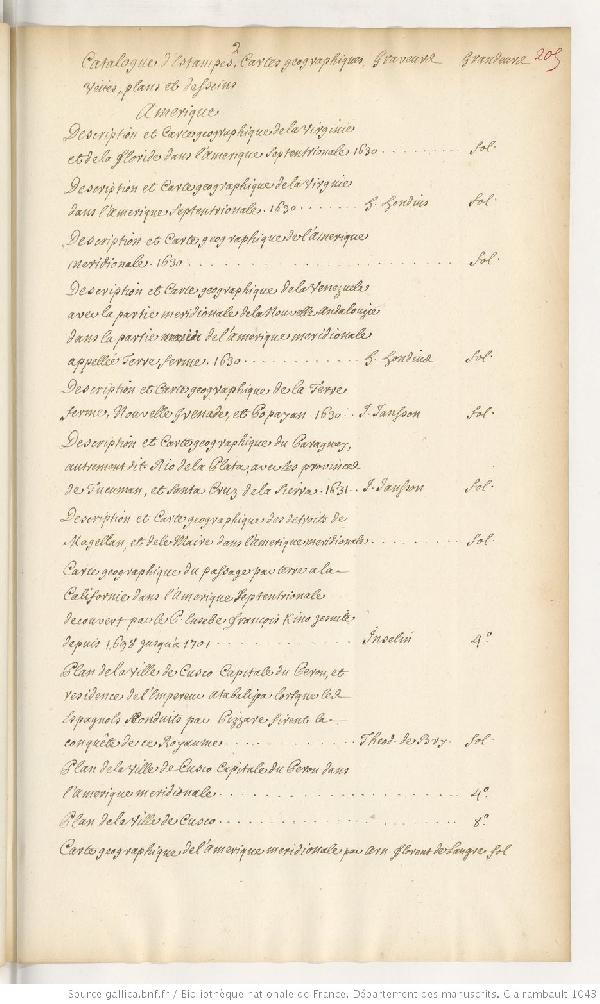 2
Catalogue d'Estampes, Cartes geographiques, Graveurs Grandeurs 205
veües, plans et desseins
Amerique
Description et Carte geographique de la Virginie
et de la floride dans l'Amerique Septentrionale 1630 ........ fol.
Description et Carte geographique de la Virginie
dans l'Amerique Septentrionale. 1630 ....... H. Hondius fol.
Description et Carte geographique de l'Amerique
meridionale. 1630 ........ fol.
Description et Carte geographique de la Venezuela
avec la partie meridionale de la Nouvelle Andalouzie
dans la partie de l'amerique meridionale
appellée Terre ferme. 1630 .......... H. Hondius fol.
Description et Carte geographique de la Terre
ferme, Nouvelle Grenade, et Popayan 1630 .. J. Jansson fol.
Description et Carte geographique du Paraguay,
autrement dit Rio de la Plata, avec les provinces
de Tucuman, et Santa Cruz de la Sierra. 1631. J. Jansson fol.
Description et Carte geographique des detroits de
Magellan, et de le Maire dans l'amerique meridionale ........ fol.
Carte geographique du passage par terre a la
Californie dans l'Amerique Septentrionale
decouvert par le P. Eusebe françois Kino jesuite
depuis 1698 jusqu'a 1701 ............ Inselin 4.º
Plan de la Ville de Cusco Capitale du Perou, et
residence de l'Empereur Atabalipa lorsque les
Espagnols conduits par Pizzare firent la
conquête de ce Royaume .......... Theod. de Bry. fol.
Plan de la Ville de Cusco Capitale du Perou dans
l'amerique meridionale .................... 4.º
Plan de la Ville de Cusco .................... 8.º
Carte geographique de l'amerique meridionale par Arn. florent de Langre fol
Source gallica.bnf.fr / Bibliothèque nationale de France. Département des manuscrits. Clairambault 1043